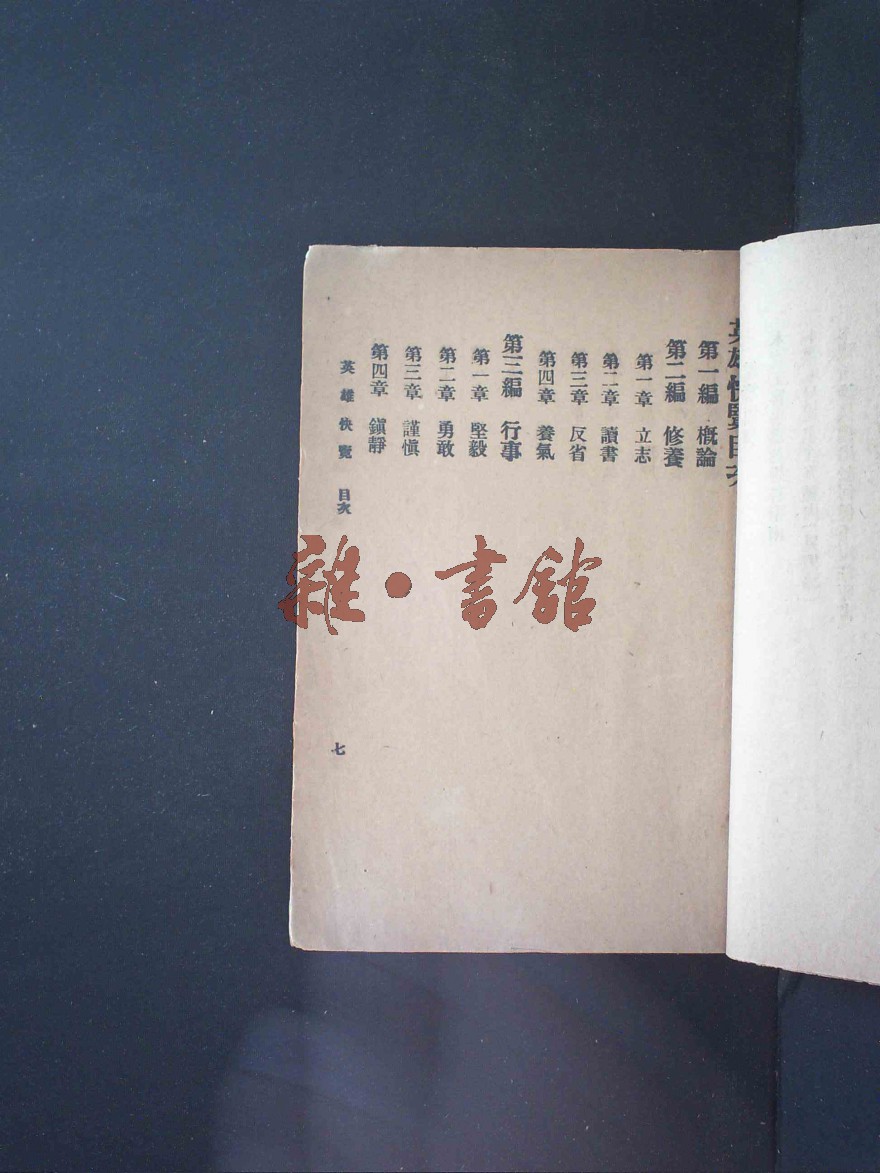 英雄快覽目次
第一編 概論
第二編 修養
第一章 立志
第二章 讀書
第三章 反省
第四章 養氣
第三編 行事
第一章 堅毅
第二章 勇敢
第三章 謹愼
第四章 鎭靜
英雄快覽 目次
七
雜·書館